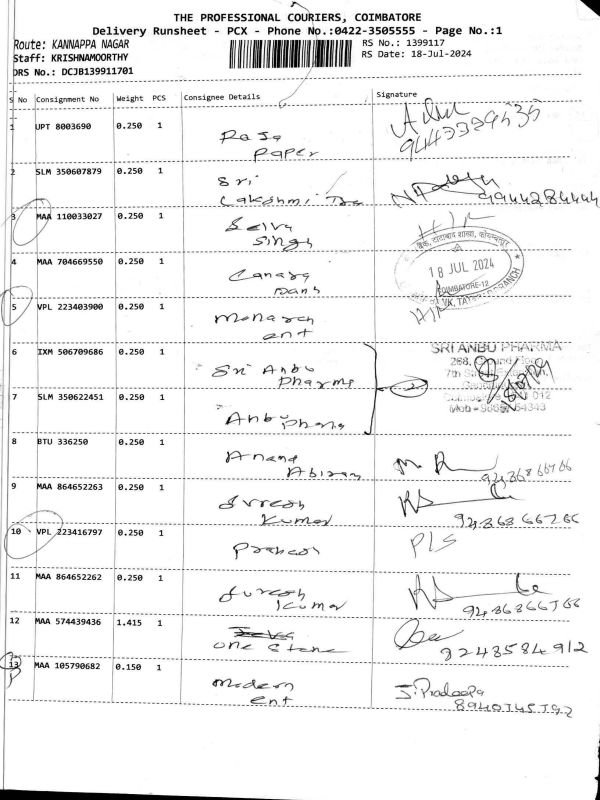 THE PROFESSIONAL COURIERS, COIMBATORE
Delivery Runsheet - PCX - Phone No.:0422-3505555 - Page No.:1
Route: KANNAPPA NAGAR
RS No.: 1399117
Staff: KRISHNAMOORTHY
RS Date: 18-Jul-2024
DRS No.: DCJB139911701
S No Consignment No Weight PCS Consignee Details Signature
1 UPT 8003690 0.250 1
Raja
Paper
9443329535
2 SLM 350607879 0.250 1
Sri
Lakshmi
9944284444
3 MAA 110033027 0.250 1
Selva
Singh
4 MAA 704669550 0.250 1
Canara
Bank
18 JUL 2024
COIMBATORE-12
BRANCH
5 VPL 223403900 0.250 1
Monarch
ent
6 IXM 506709686 0.250 1
Sri Anbu
Pharma
SRI ANBU PHARMA
268,
7th
7 SLM 350622451 0.250 1
Anbu
012
Mob
64343
8 BTU 336250 0.250 1
Anand
Abiram
9 MAA 864652263 0.250 1
Suresh
Kumar
10 VPL 223416797 0.250 1
P/S
11 MAA 864652262 0.250 1
Suresh
Kumar
12 MAA 574439436 1.415 1
one stone
8248584912
13 MAA 105790682 0.150 1
Modern
ent
S. Pradeepa